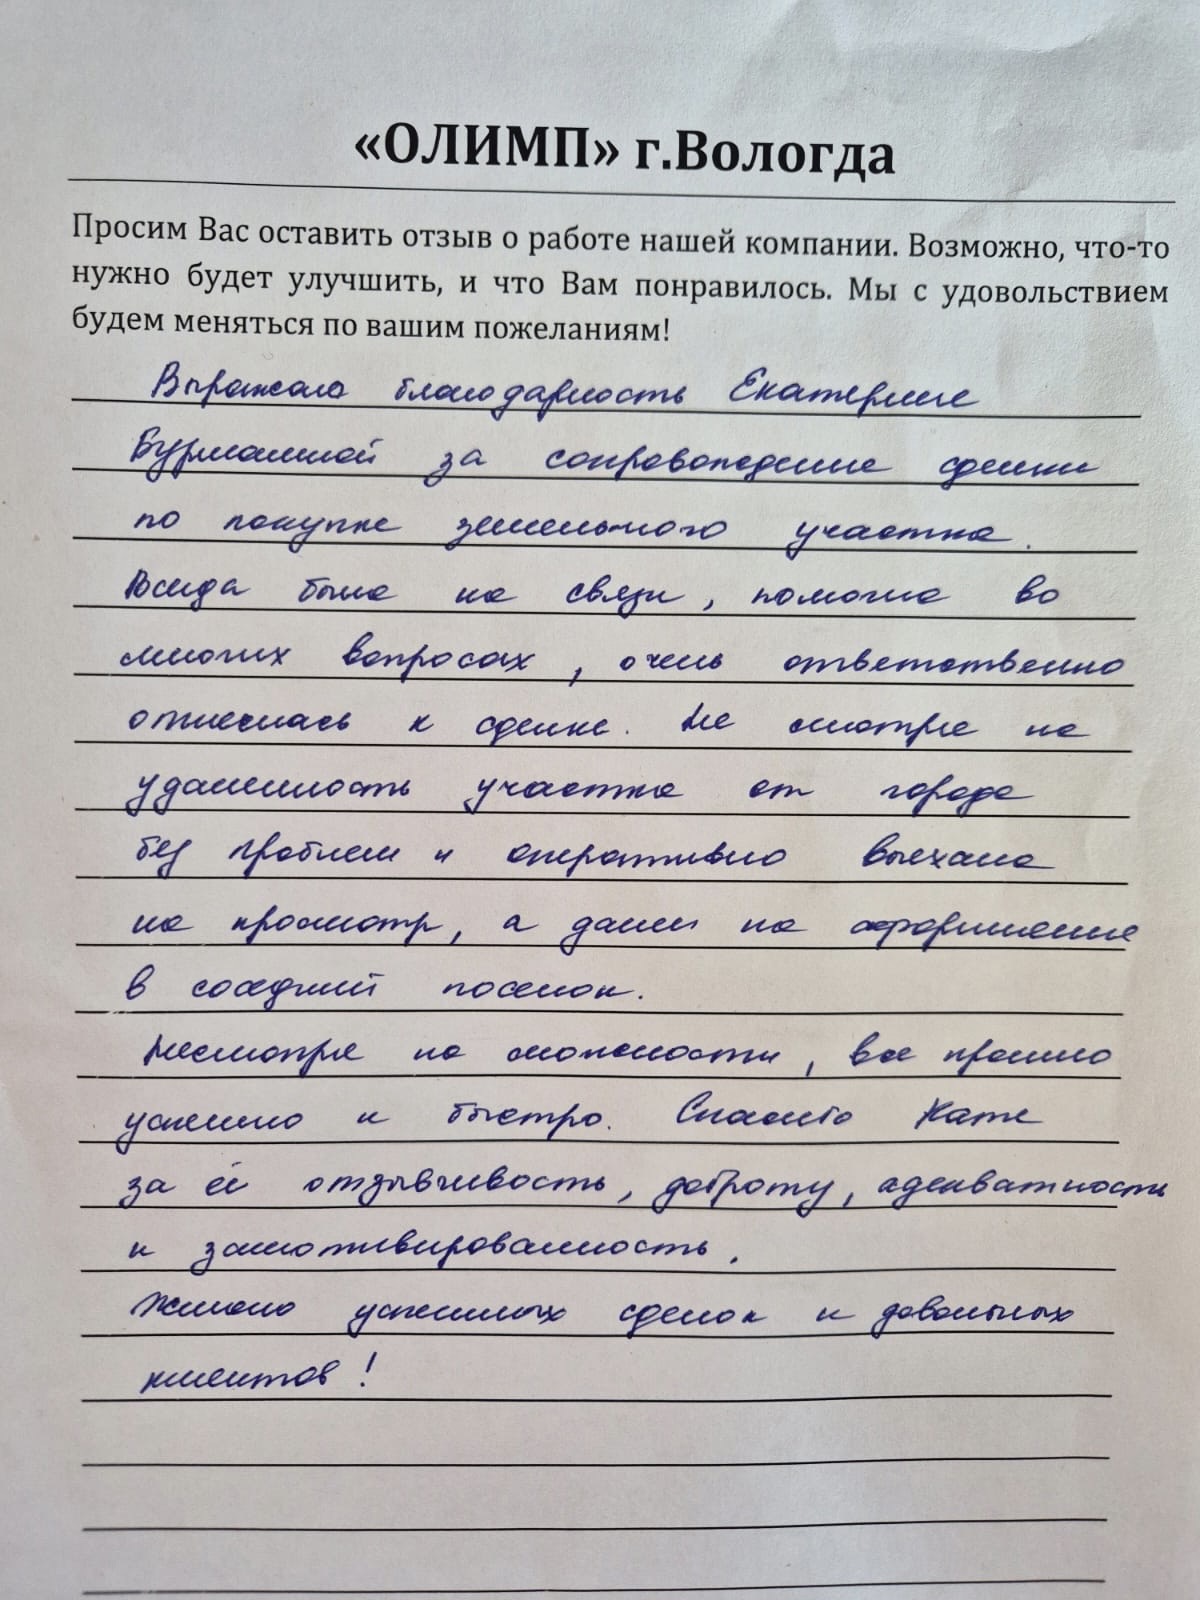 «ОЛИМП» г.Вологда
Просим Вас оставить отзыв о работе нашей компании. Возможно, что-то
нужно будет улучшить, и что Вам понравилось. Мы с удовольствием
будем меняться по вашим пожеланиям!
Выражаю благодарность Екатерине
за сопровождение сделки
по покупке земельного участка.
Всегда была на связи, помогла во
многих вопросах, очень ответственно
отнеслась к сделке. Не смотря на
удаленность участка от города
без проблем и оперативно выехала
на просмотр, а далее на оформление
в соседний поселок.
Несмотря на сложности, все прошло
успешно и быстро. Спасибо Кате
за её отзывчивость, доброту, адекватность
и замотивированность.
Желаю успешных сделок и довольных
клиентов!